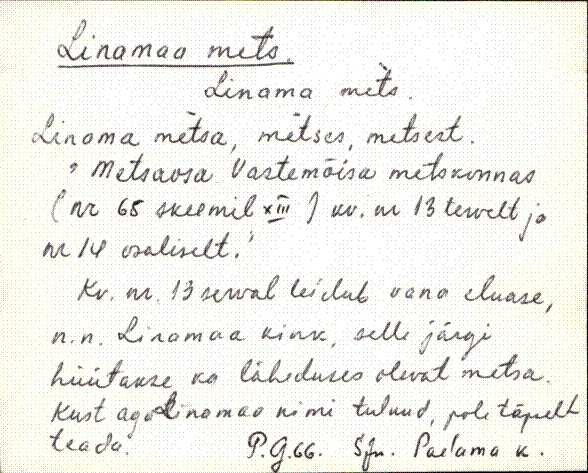 Linamaa mets.
Linama mèts.
Linama mètsa, mètses, metsest.
" Metsaosa Vastemõisa metskonnas
( nr 65 skeemil XIII ) kv. nr 13 tervelt ja
nr 14 osaliselt."
Kv. nr. 13 serval leidub vana eluase,
n.n. Linamaa kink, selle järgi
hüütakse ka läheduses olevat metsa.
Kust aga Linamaa nimi tulnud, pole täpselt
teada.
P.G.66. Sjn. Paelama k.